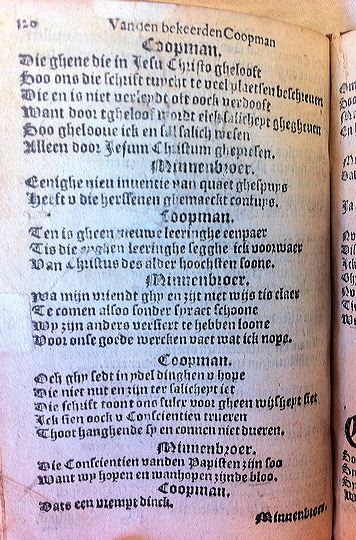 120 Van den bekeerden Coopman
Coopman.
Die ghene die in Jesu Christo ghelooft
Soo ons die schrift tuycht te veel plaetsen beschreven
Die en is niet verleydt oft oock verdooft
Want door tgheloof wordt elck salicheyt ghegheven
Soo gheloove ick en sal salich wesen
Alleen door Jesum Christum ghepresen.
Minnenbroer.
Eenighe nieu inventie van quaet ghespuys
Heeft u die herssenen ghemaeckt confuys.
Coopman.
Ten is gheen nieuwe leeringhe eenpaer
Tis die leeringhe segghe ick voorwaer
Van Christus des alder hoochsten soone.
Minnenbroer.
Wa mijn vriendt ghy en zijt niet wijs tis claer
Te comen alsoo sonder spraet schoone
Wy zijn anders versiert te hebben loone
Voor onse goede wercken vaet wat ick nope.
Coopman.
Och ghy sedt in ydel dinghen u hope
Die niet nut en zijn ter salicheyt iet
Die schrift toont ons sulcx voor gheen wijsheyt siet
Ick sien oock u Conscientien trueren
Thoot hanghende sy en connen niet dueren.
Minnenbroer.
Die Conscientien vanden Papisten zijn soo
Want wy hopen en wanhopen zijnde bloo.
Coopman.
Dats een vrempt dinck.
Minnenbroer.